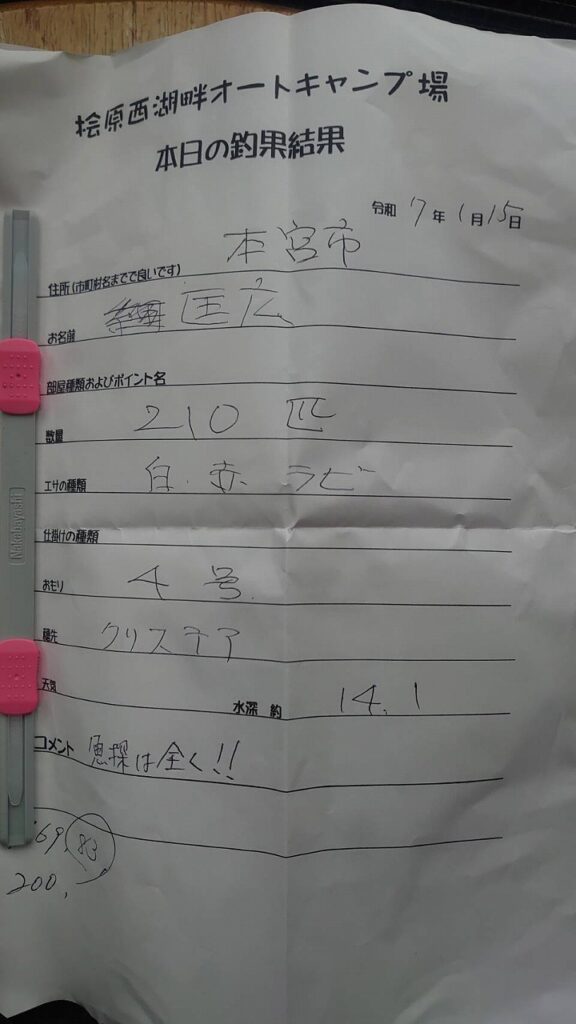 桧原西湖畔オートキャンプ場
本日の釣果結果
令和 7年 1月 15日
住所(市町村名までで良いです) 本宮市
お名前 匡広
部屋種類およびポイント名
数量 210 匹
エサの種類 白.赤 ラビー
仕掛けの種類
おもり 4 号
穂先 クリスチア
天気 水深 約 14.1
コメント 魚探は全く!!
69. 83
200.
Nakabayashi